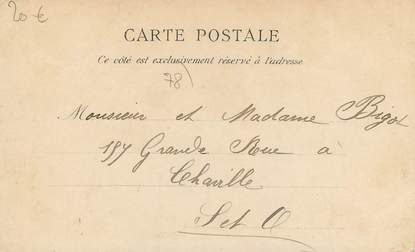 20 €
CARTE POSTALE
Ce côté est exclusivement réservé à l'adresse
78
Monsieur et Madame Bigot
157 Grande Rue à
Chaville
S et O